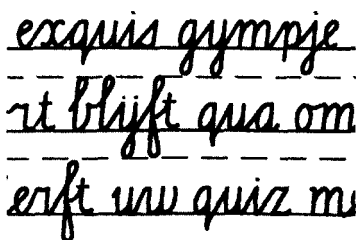 exquis gympje
rt blijft qua om
erft uw quiz m